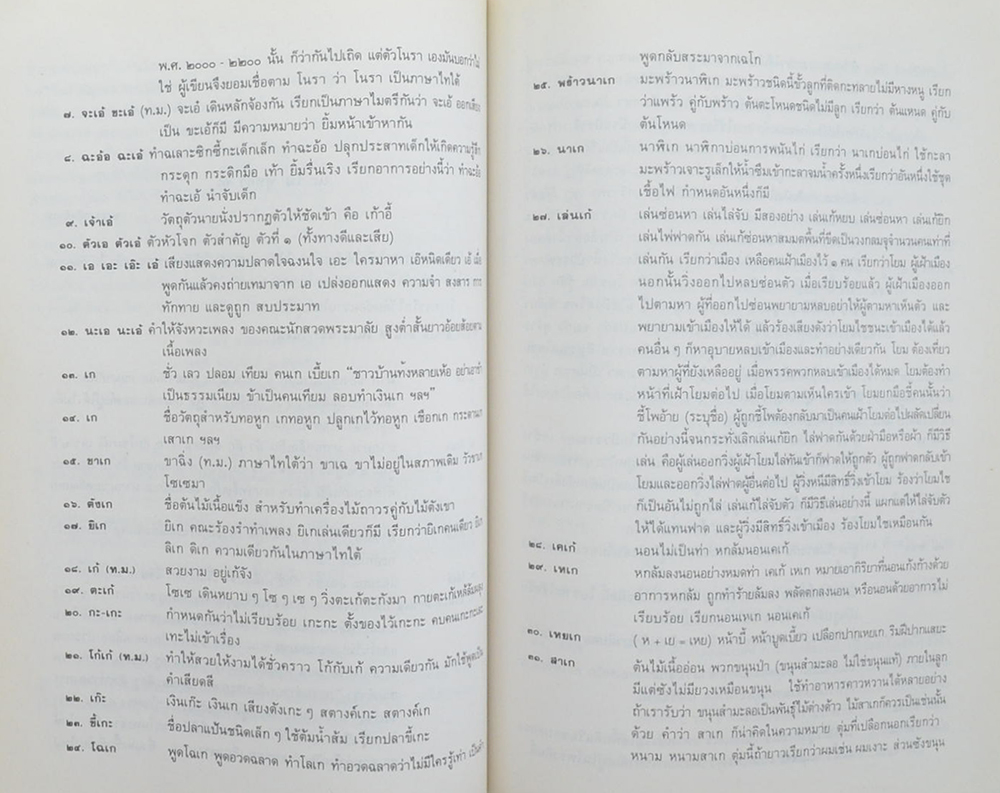 พ.ศ. ๒๐๐๐ - ๒๒๐๐ นั้น ก็ว่ากันไปเถิด แต่ตัวโนรา เองมันบอกว่าไม่
ใช่ ผู้เขียนจึงยอมเชื่อตาม โนรา ว่า โนรา เป็นภาษาไทใต้
๗. จะเอ๋ ขะเอ๋ (ท.ม.) จะเอ๋ เดินหลักจ้องกัน เรียกเป็นภาษาไมตรีกันว่า จะเอ๋
เป็น ขะเอ้ก็มี มีความหมายว่า ยิ้มหน้าเข้าหากัน
๘. ฉะอ้อ ฉะเอ๋ ทำฉเลาะซิกซี้กะเด็กเล็ก ทำฉะอ้อ ปลุกประสาทเด็กให้เกิดความรู้สึก
กระดุก กระดิกมือ เท้า ยิ้มรื่นเริง เรียกอาการอย่างนี้ว่า ทำฉะอ้อ
ทำฉะเอ้ นำจับเด็ก
๙. เจ้าเอ๋ วัตถุตัวนายนั่งปรากฏตัวให้ชัดเข้า คือ เก้าอี้
๑๐. ตัวเอ ตัวเอ้ ตัวหัวโจก ตัวสำคัญ ตัวที่ ๑ (ทั้งทางดีและเสีย)
๑๑. เอ เอะ เอ๊ะ เอ๋ เสียงแสดงความปลาดใจฉงนใจ เอะ ใครมาหา เอ๊หนิดเดียว เอ๋
พูดกันแล้วคงถ่ายเทมาจาก เอ เปล่งออกแสดง ความจำ สงสาร การ
ทักทาย และดูถูก สบประมาท
๑๒. นะเอ นะเอ๋ คำให้จังหวะเพลง ของคณะนักสวดพระมาลัย สูงต่ำสั้นยาวอ้อยส้อยตาม
เนื้อเพลง
๑๓. เก ชั่ว เลว ปลอม เทียม คนเก เบี้ยเก "ชาวบ้านทั้งหลายเห้อ อย่าเอา
เป็นธรรมเนียม ข้าเป็นคนเทียม ลอบทำเงินเก ฯลฯ"
๑๔. เก ชื่อวัตถุสำหรับทอหูก เกทอหูก ปลูกเกไว้ทอหูก เชือกเก กระดานเก
เสาเก ฯลฯ
๑๕. ขาเก ขาฉิ่ง (ท.ม.) ภาษาไทใต้ว่า ขาเฉ ขาไม่อยู่ในสภาพเดิม วัวขาเก
โซเซมา
๑๖. ตังเก ชื่อต้นไม้เนื้อแข็ง สำหรับทำเครื่องไม้ถาวรคู่กับไม้ตังเขา
๑๗. ยิเก ยิเก คณะร้องรำทำเพลง ยิเกเล่นเดียวก็มี เรียกว่ายิเกคนเดียว ยิเก
ลิเก ดิเก ความเดียวกันในภาษาไทใต้
๑๘. เก๋ (ท.ม.) สวยงาม อยู่เก้จัง
๑๙. ตะเก้ โซเซ เดินหยาบ ๆ โซ ๆ เซ ๆ วิ่งตะเก้ตะกังมา กายตะเก้
๒๐. กะ-เกะ กำหนดกันว่าไม่เรียบร้อย เกะกะ ตั้งของไว้เกะกะ คบคนเกะกะ
เกะไม่เข้าเรื่อง
๒๑. โก้เก๋ (ท.ม.) ทำให้สวยให้งามได้ชั่วคราว โก้กับเก้ ความเดียวกัน มักใช้พูดเป็น
คำเสียดสี
๒๒. เก๊ะ เงินเก๊ะ เงินเก เสียงดังเกะ ๆ สตางค์เกะ สตางค์เก
๒๓. ขี้เกะ ชื่อปลาแป้นชนิดเล็ก ๆ ใช้ต้มน้ำส้ม เรียกปลาขี้เกะ
๒๔. โฉเก พูดโฉเก พูดอวดฉลาด ทำโลเก ทำอวดฉลาดว่าไม่มีใครรู้เท่า
พูดกลับสระมาจากเฉโก
๒๕. พร้าวนาเก มะพร้าวนาพิเก มะพร้าวชนิดนี้ขั้วลูกที่ติดกะทลายไม่มีหางหนู เรียก
ว่าแพร้ว คู่กับพร้าว ต้นตะโหนดชนิดไม่มีลูก เรียกว่า ต้นแหนด คู่กับ
ต้นโหนด
๒๖. นาเก นาพิเก นาพิกาบ่อนการพนันไก่ เรียกว่า นาเกบ่อนไก่ ใช้กะลา
มะพร้าวเจาะรูเล็กให้น้ำซึมเข้ากะลาจมน้ำครั้งหนึ่งเรียกว่าอันหนึ่งใช้ชุด
เชื้อไฟ กำหนดอันหนึ่งก็มี
๒๗. เล่นเก้ เล่นซ่อนหา เล่นไล่จับ มีสองอย่าง เล่นเก้หยบ เล่นซ่อนหา เล่นเก้ยิก
เล่นไล่ฟาดกัน เล่นเก้ซ่อนหาสมมตพื้นที่ขีดเป็นวงกลมจุจำนวนคนเท่าที่
เล่นกัน เรียกว่าเมือง เหลือคนเฝ้าเมืองไว้ ๑ คน เรียกว่าโยม ผู้เฝ้าเมือง
นอกนั้นวิ่งออกไปหลบซ่อนตัว เมื่อเรียบร้อยแล้ว ผู้เฝ้าเมืองออก
ไปตามหา ผู้ที่ออกไปซ่อนพยายามหลบอย่าให้ผู้ตามหาเห็นตัว และ
พยายามเข้าเมืองให้ได้ แล้วร้องเสียงดังว่าโยมไชชนะเข้าเมืองได้แล้ว
คนอื่น ๆ ก็หาอุบายหลบเข้าเมืองและทำอย่างเดียวกัน โยม ต้องเที่ยว
ตามหาผู้ที่ยังเหลืออยู่ เมื่อพรรคพวกหลบเข้าเมืองได้หมด โยมต้องทำ
หน้าที่เฝ้าโยมต่อไป เมื่อโยมตามเห็นใครเข้า โยมยกมือชี้คนนั้นว่า
ชี้โพอ้าย (ระบุชื่อ) ผู้ถูกชี้โพต้องกลับมาเป็นคนเฝ้าโยมต่อไปผลัดเปลี่ยน
กันอย่างนี้จนกระทั่งเลิกเล่นเก้ยิก ไล่ฟาดกันด้วยฝ่ามือหรือผ้า ก็มีวิธี
เล่น คือผู้เล่นออกวิ่งผู้เฝ้าโยมไล่ทันเข้าก็ฟาดให้ถูกตัว ผู้ถูกฟาดกลับเข้า
โยมและออกวิ่งไล่ฟาดผู้อื่นต่อไป ผู้วิ่งหนีมีสิทธิ์วิ่งเข้าโยม ร้องว่าโยมไช
ก็เป็นอันไม่ถูกไล่ เล่นเก้ไล่จับตัว ก็มีวิธีเล่นอย่างนี้ แผกแต่ให้ไล่จับตัว
ให้ได้แทนฟาด และผู้วิ่งมีสิทธิ์วิ่งเข้าเมือง ร้องโยมไชเหมือนกัน
๒๘. เคเก้ นอนไม่เป็นท่า หกล้มนอนเคเก้
๒๙. เหเก หกล้มลงนอนอย่างหมดท่า เคเก้ เหเก หมายเอากิริยาที่นอนเก้งก้างด้วย
อาการหกล้ม ถูกทำร้ายล้มลง พลัดตกลงนอน หรือนอนด้วยอาการไม่
เรียบร้อย เรียกนอนเหเก นอนเคเก้
๓๐. เหยเก ( ห + เย = เหย) หน้าบี้ หน้าบูดเบี้ยว เปลือกปากเหยเก ริมฝีปากแสยะ
๓๑. สาเก ต้นไม้เนื้ออ่อน พวกขนุนป่า (ขนุนสำมะลอ ไม่ใช่ขนุนแท้) ภายในลูก
มีแต่ซังไม่มียวงเหมือนขนุน ใช้ทำอาหารคาวหวานได้หลายอย่าง
ถ้าเรารับว่า ขนุนสำมะลอเป็นพันธุ์ไม้ต่างด้าว ไม้สาเกก็ควรเป็นเช่นนั้น
ด้วย คำว่า สาเก ก็น่าคิดในความหมาย ตุ่มที่เปลือกนอกเรียกว่า
หนาม หนามสาเก ตุ่มนี้ถ้ายาวเรียกว่าผมเช่น ผมเงาะ ส่วนซังขนุน